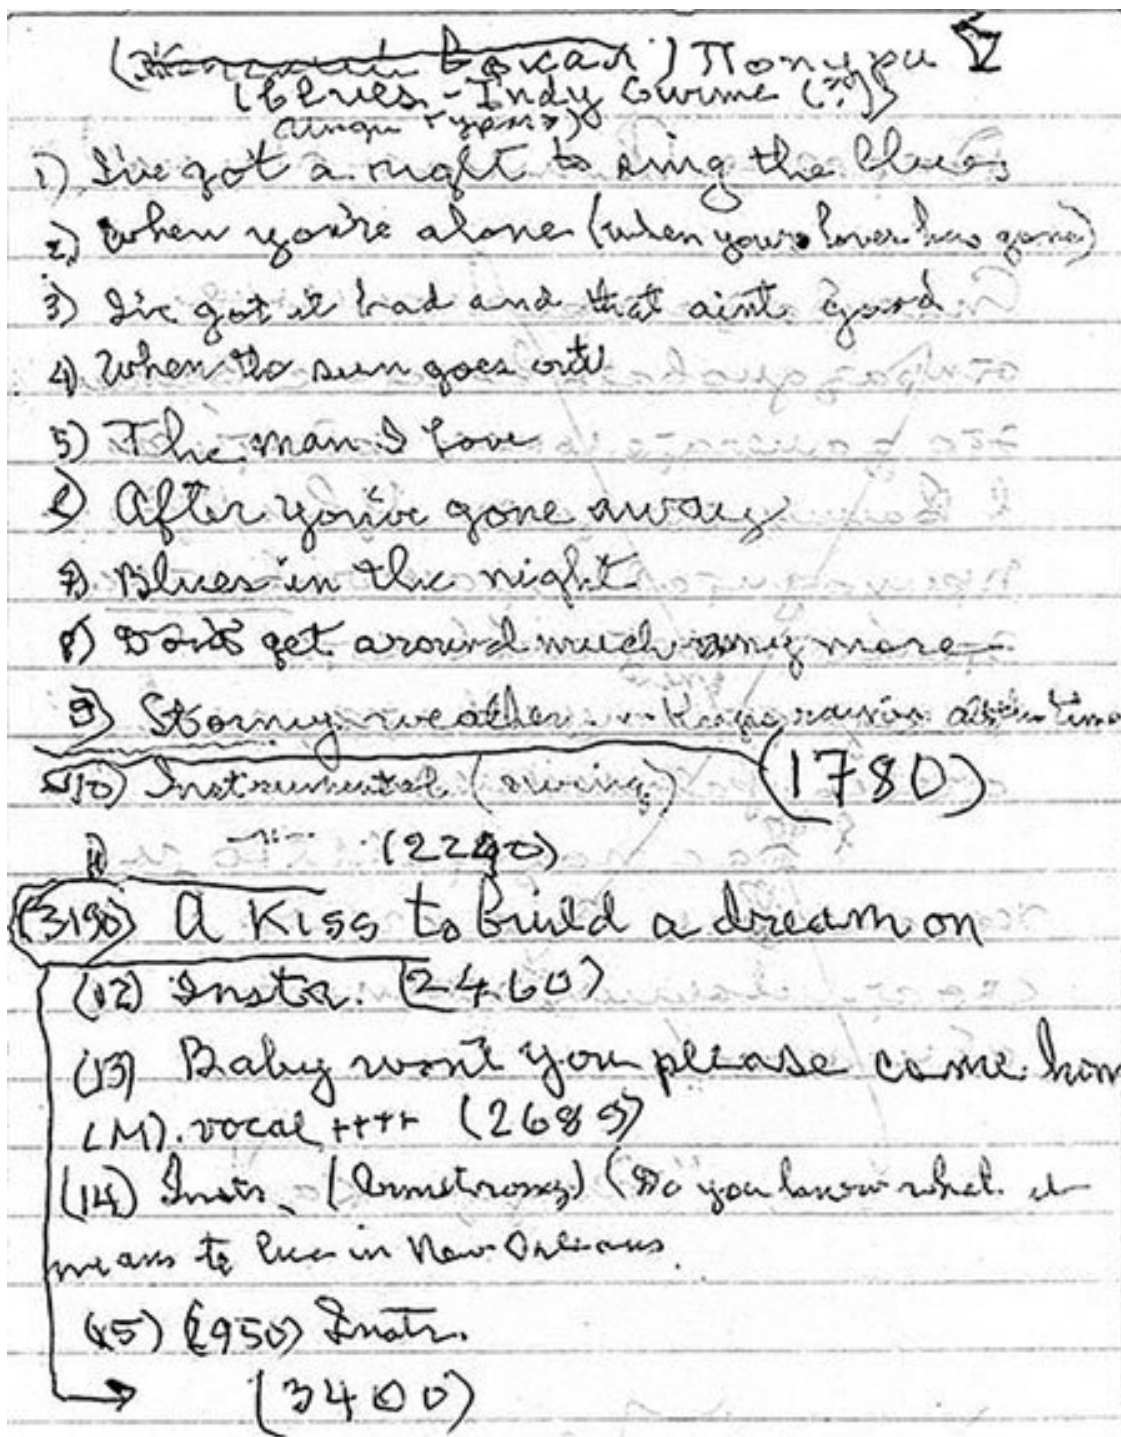 (Женский вокал) Попури
(Blues - Indy Gurme (?))
1) I've got a right to sing the blues
2) When you're alone (when your lover has gone)
3) I've got it bad and that aint good
4) When the sun goes out
5) The man I love
6) After you've gone away
7) Blues in the night
8) Don't get around much any more
9) Stormy weather - Keeps rainin all the time
10) Instrumental (swing) (1780)
11 —"— (2240)
(3190) A Kiss to build a dream on
(12) Instr. (2460)
(13) Baby wont you please come hom
(M). vocal ++++ (2689)
(14) Instr. (Armstrong) (Do you know what it
means to live in New Orleans.
(15) (2950) Instr.
(3400)